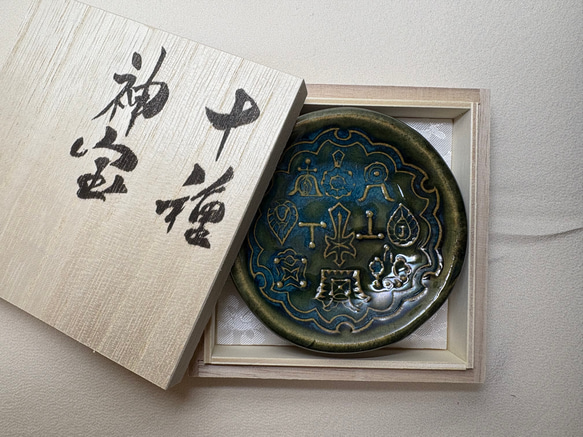 十種
神宝